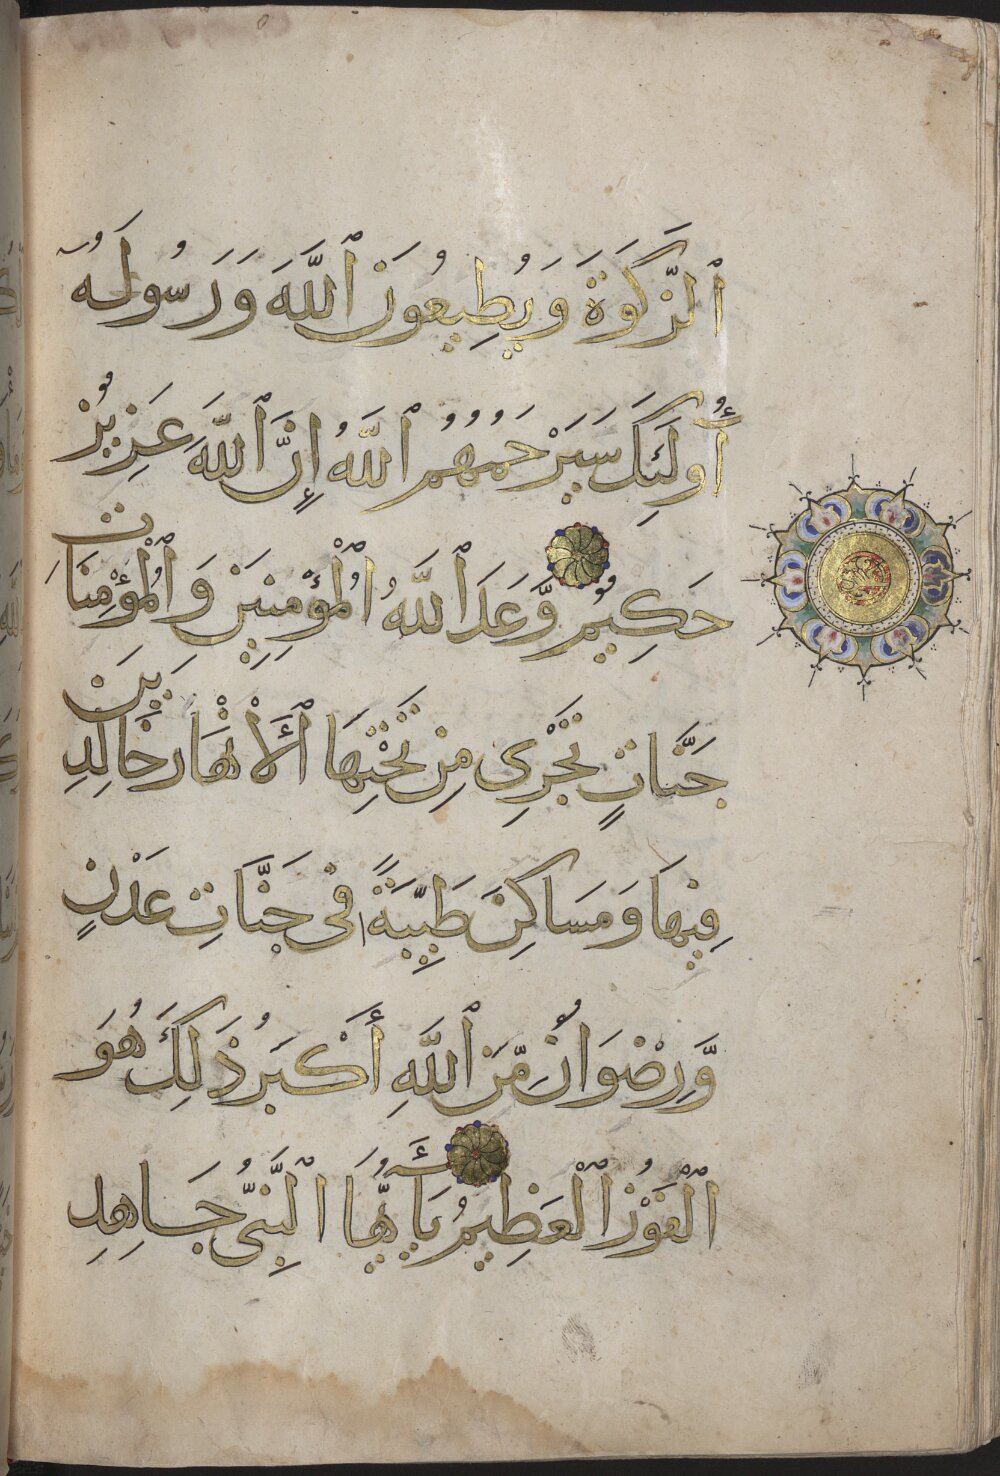 ٱلزَّكَوٰةَ وَيُطِيعُونَ ٱللَّهَ وَرَسُولَهُ
أُولَٰئِكَ سَيَرْحَمُهُمُ ٱللَّهُ إِنَّ ٱللَّهَ عَزِيزٌ
حَكِيمٌ وَّعَدَ ٱللَّهُ ٱلْمُؤْمِنِينَ وَٱلْمُؤْمِنَاتِ
جَنَّاتٍ تَجْرِى مِن تَحْتِهَا ٱلْأَنْهَارُ خَالِدِينَ
فِيهَا وَمَسَاكِنَ طَيِّبَةً فِى جَنَّاتِ عَدْنٍ
وَّرِضْوَانٌ مِّنَ ٱللَّهِ أَكْبَرُ ذَٰلِكَ هُوَ
ٱلْفَوْزُ ٱلْعَظِيمُ يَٰأَيُّهَا ٱلنَّبِىُّ جَاهِدِ